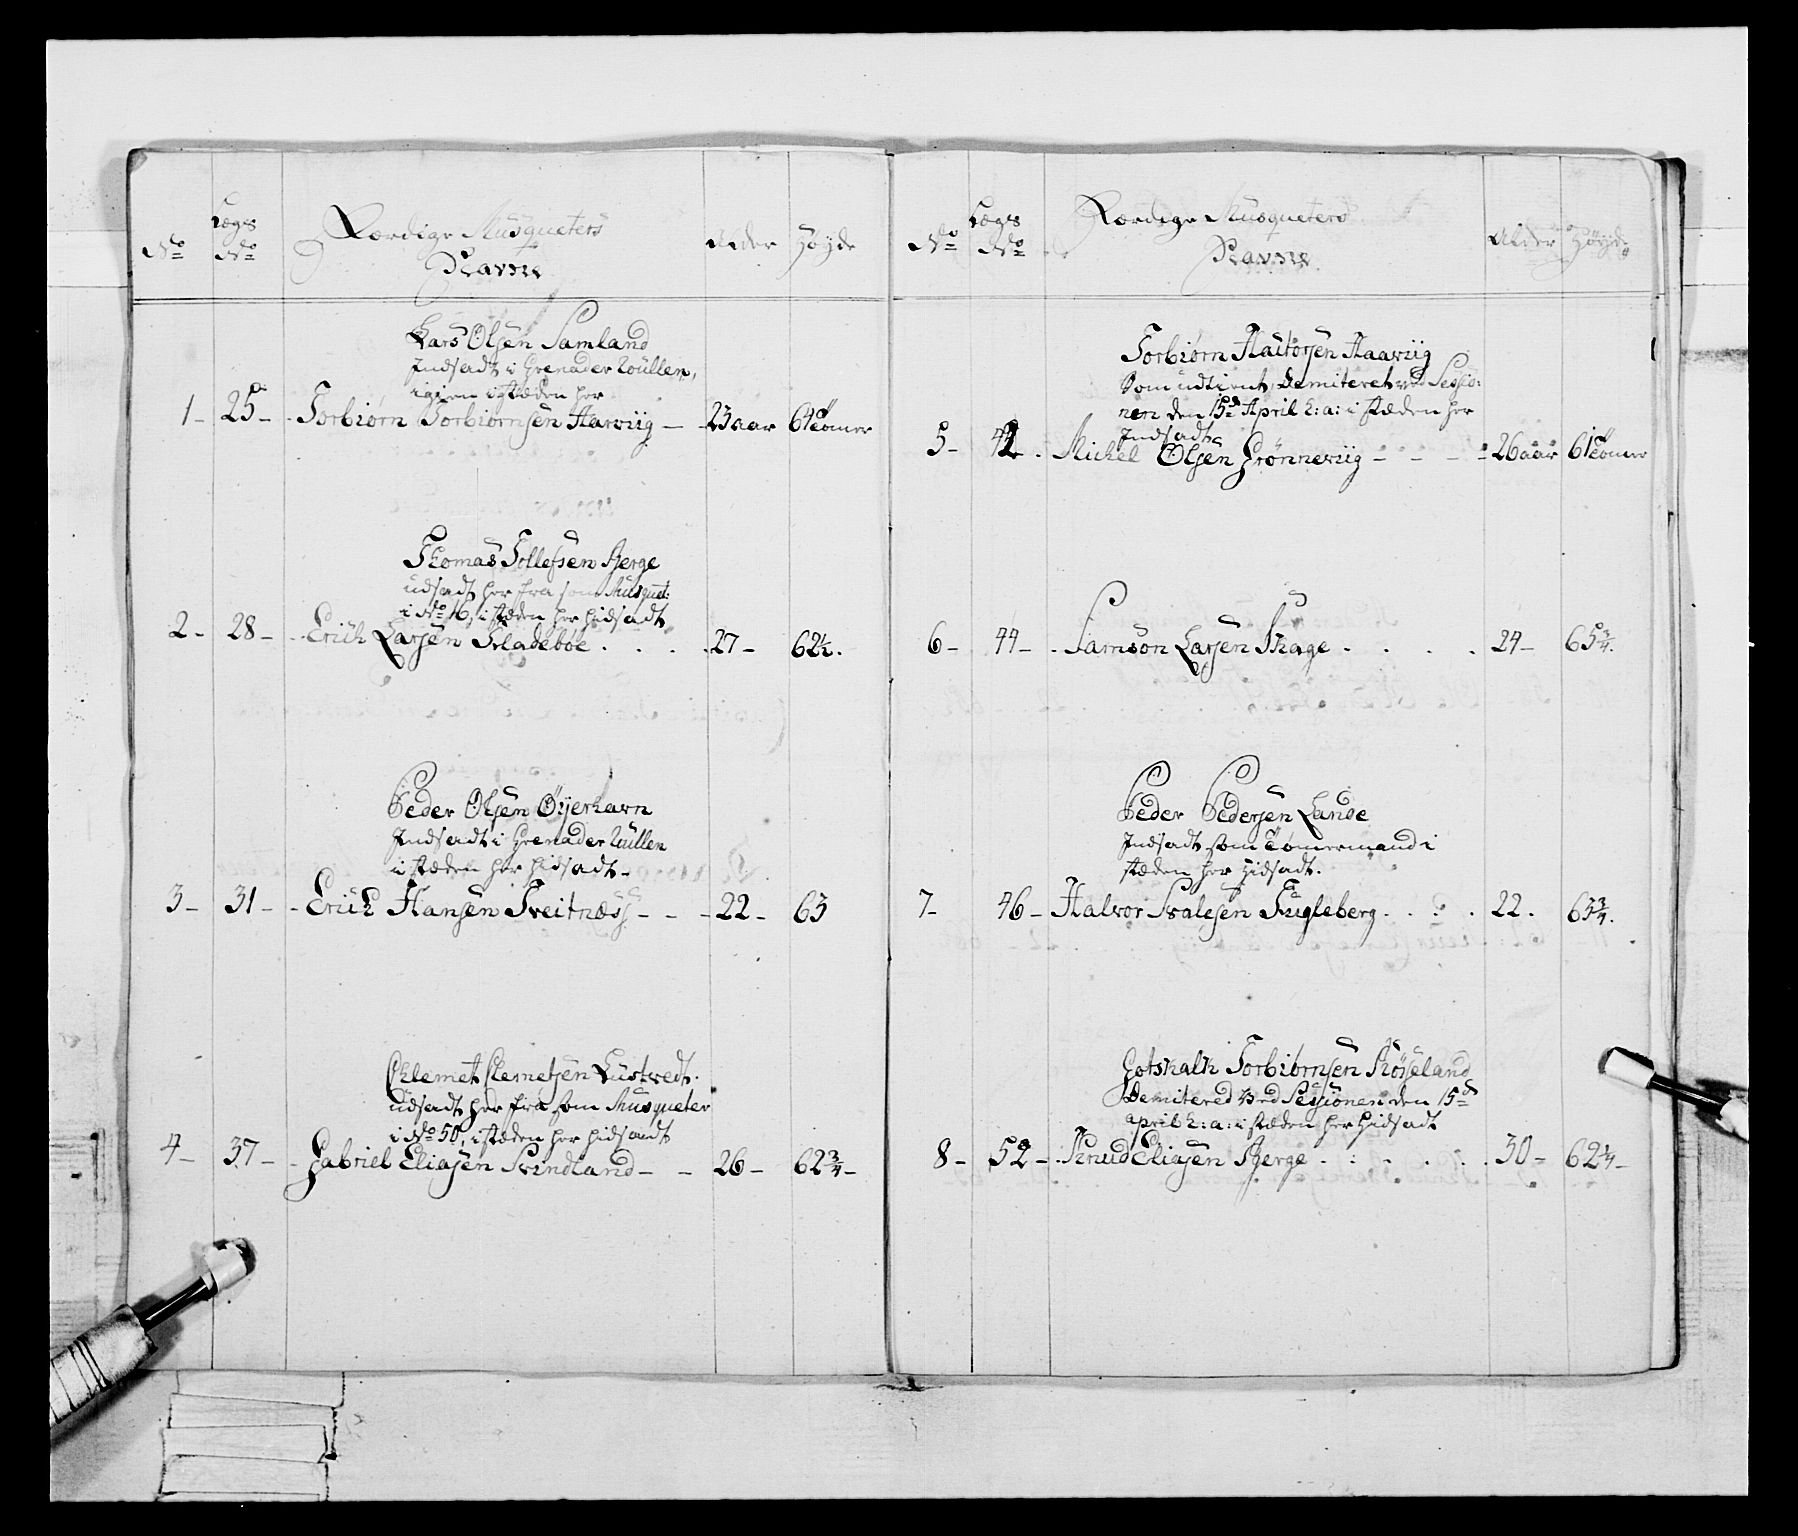 No
Lægs
No
Færdige Musqueters
Navne
Alder
Høyde
Lars Olsen Samland
Indsadt i Grenader Roullen,
igien i stæden her
1 - 25 - Torbiørn Torbiørnsen Haarviig - 23 aar 64 Tomer
Thomas Tollefsen Berge
udsadt her fra som Musquet:
i No 16, i stæden her hidsadt
2 - 28 - Erich Larsen Fladebøe . . . . 27 - 62½.
Peder Olsen Øyerhavn
Indsadt i Grenader Rullen
i stæden her hidsadt -
3 - 31 - Erich Hansen Tveitnæss - - - 22 - 63
Chlemet Clemetsen Lustvedt.
udsadt her fra som Musqueter
i No 50, i stæden her hidsadt
4 - 37 - Gabriel Eliasen Svindland - - 26 - 62¾ -
No
Lægs
No
Færdige Musqueters
Navne
Alder
Høyde
Torbiørn Hactorsen Haaviig
Som udtient, Demiteret ved Sessio:
nen den 15de April h: a: i stæden her
Indsadt
5 - 42 . Michel Olsen Grønneviig - - - - 26 aar 61 Tomer
6 - 44 - . Samson Larsen Skage . . . . 24 - 65¾.
Peder Pedersen Lande
Indsadt som Tømermand i
stæden her hidsadt.
7 - 46 - Halvor Svalesen Fugleberg . . . . 22 . 63¾.
Gotskalk Torbiørnsen Røsseland
Demitered ved Sessionen den 15de
April h: a: i stæden her hidsadt
8 - 52 - . Knud Eliasen Berge . . . . . . 30 - 62¾ -